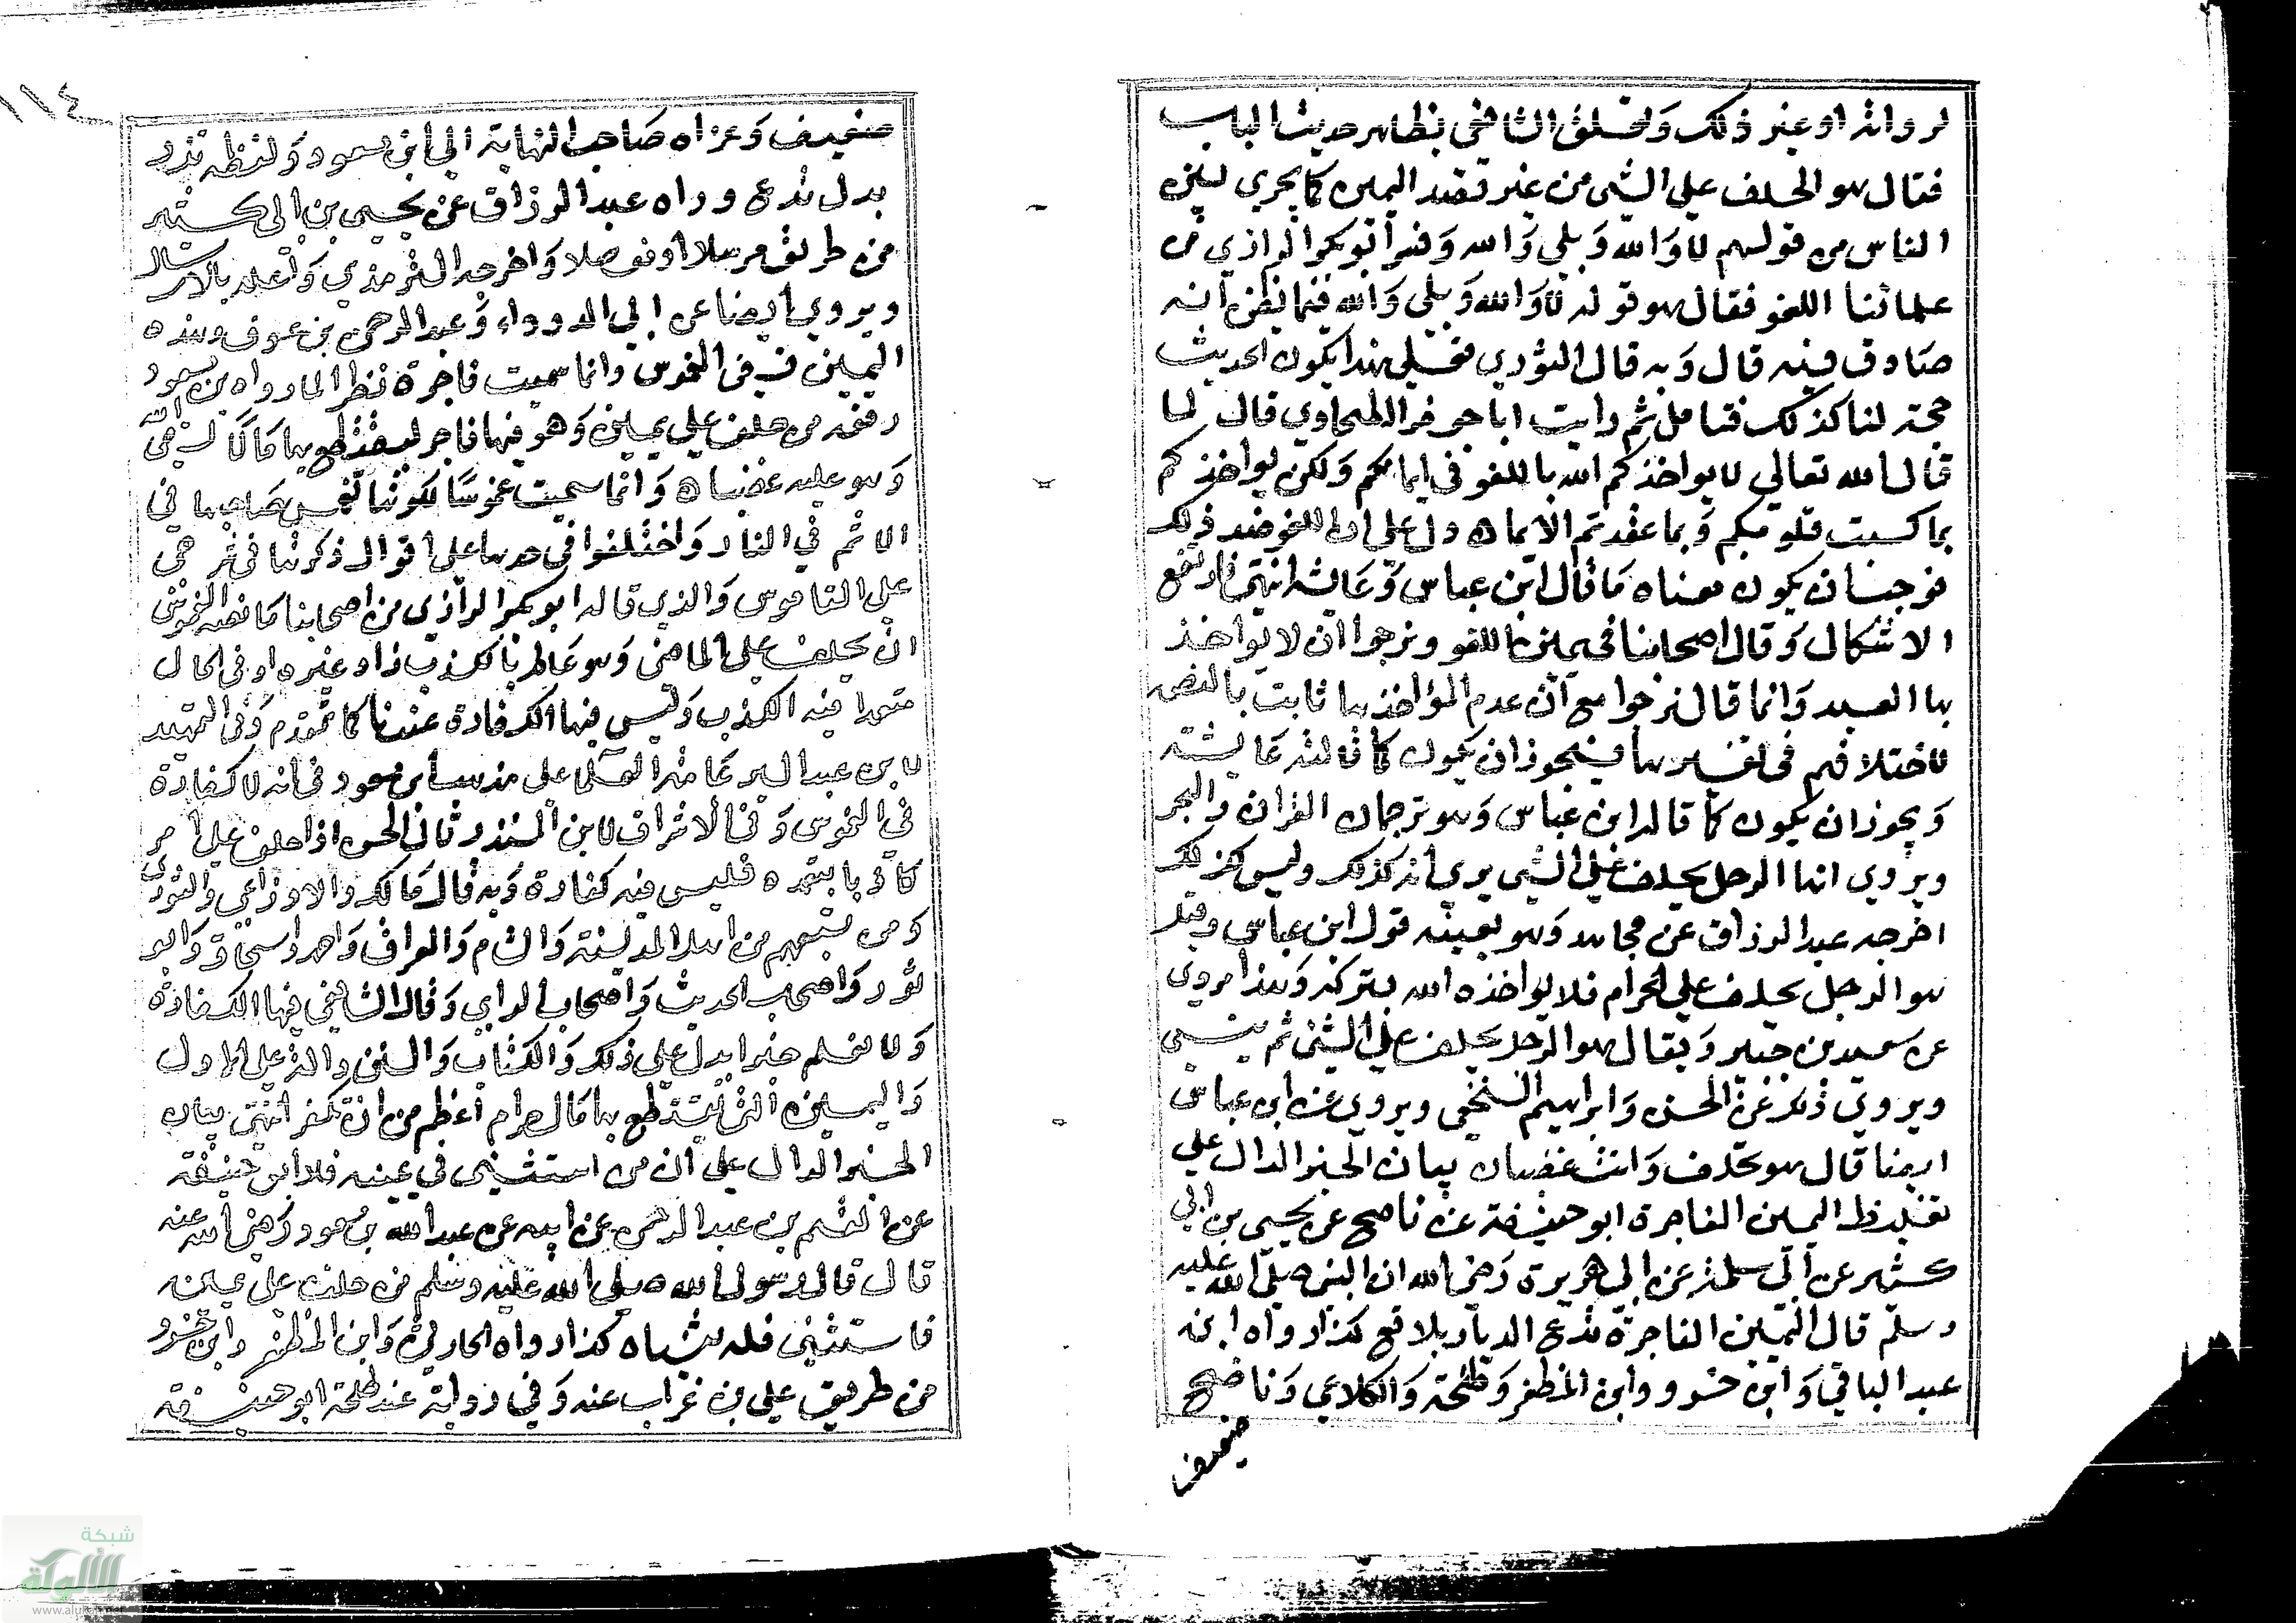 لرواته او غير ذلك وتعلق الشافعي بظاهر حديث الباب
فقال هو الحلف علي الشي من غير قصد اليمين كما يجري بين
الناس من قولهم لا والله وبلي والله وفسر أبو بكر الرازي من
علمائنا اللغو فقال هو قوله لا والله وبلي والله فيما يظن انه
صادق فيه قال وبه قال الثوري فعلي هذا يكون الحديث
حجة لنا كذلك فتامل ثم رايت ابا جعفر الطحاوي قال لما
قال الله تعالي لا يواخذكم الله باللغو في ايمانكم ولكن يواخذكم
بما كسبت قلوبكم وبما عقدتم الايمان دل علي ان اللغو ضد ذلك
فوجب ان يكون معناه ما قال ابن عباس وعائشة انتهي فارتفع
الاشكال وقال اصحابنا في يمين اللغو ونرجوا ان لا يواخذ
بها العبد وانما قال نرجوا مع ان عدم المؤاخذ بها ثابت بالنص
لاختلافهم في تفسيرها فيجوز ان يكون كما قالته عايشة
ويجوز ان يكون كما قاله ابن عباس وهو ترجمان القران والبحر
ويروي انها الرجل يحلف علي الشي يري أنه كذلك وليس كذلك
اخرجه عبد الرزاق عن مجاهد وهو بعينه قول ابن عباس وقيل
هو الرجل يحلف علي الحرام فلا يواخذه الله بتركه وهذا مروي
عن سعيد بن جبير ويقال هو الرجل يحلف علي الشي ثم ينسي
ويروي ذلك عن الحسن وابراهيم النخعي ويروي عن ابن عباس
ايضا قال هو تحلف وانت غضبان بيان الخبر الدال علي
تغليظ اليمين الفاجرة ابو حنيفة عن ناصح عن يحيي بن ابي
كثير عن ابي سلمة عن ابي هريرة رضي الله ان النبي صلي الله عليه
وسلم قال اليمين الفاجرة تدع الديار بلاقع كذا رواه ابن
عبد الباقي وابن خسرو وابن المظفر وطلحة والكلاعي وناصح
ضعيف
١١٤
ضعيف وعزاه صاحب النهاية الي ابن مسعود ولفظه تذر
بدل تدع ورواه عبد الرزاق عن يحيي بن ابي كثير
من طريق مرسلا وموصلا واخرجه الترمذي واعله بالارسال
ويروي أيضا عن ابي الدرداء وعبد الرحمن بن عوف وهذه
اليمين هي الغموس وانما سميت فاجرة نظرا لما رواه ابن مسعود
رفعه من حلف علي يمين وهو فيها فاجر ليقتطع بها مالا لقي الله
وهو عليه غضبان وانما سميت غموسا لكونها تغمس صاحبها في
الاثم في النار واختلفوا في حدها علي اقوال ذكرتها في شرحي
علي القاموس والذي قاله ابو بكر الرازي من اصحابنا ما نصه الغموس
ان يحلف علي الماضي وهو عالم بالكذب زاد غيره او في الحال
متعمدا فيه الكذب وليس فيها الكفارة عندنا كما تقدم وفي التمهيد
لابن عبد البر عامة العلما علي مذهب ابن مسعود في انه لا كفارة
في الغموس وفي الاشراف لابن المنذر قال الحسن اذا حلف علي امر
كاذبا يتعمده فليس فيه كفارة وبه قال مالك والاوزاعي والثوري
ومن تبعهم من اهل المدينة والشام والعراق واحمد واسحاق وابو
ثور واصحاب الحديث واصحاب الراي وقال الشافعي فيها الكفارة
ولا نعلم خبرا يدل علي ذلك والكتاب والسنن دالة علي الاول
واليمين التي يقتطع بها مال حرام اعظم من ان تكفر انتهي بيان
الخبر الدال علي ان من استثني في يمينه فله ابو حنيفة
عن القسم بن عبد الرحمن عن ابيه عن عبد الله بن مسعود رضي الله عنه
قال قال رسول الله صلي الله عليه وسلم من حلف علي يمين
فاستثني فله ثنياه كذا رواه الحارثي وابن المظفر وابن خسرو
من طريق علي بن غراب عنه وفي رواية عند طلحة ابو حنيفة
شبكة
الألوكة
www.alukah.net